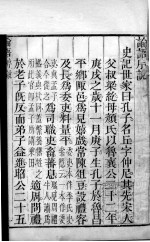 論語序說
史記世家曰孔子名丘字仲尼其先宋人
父叔梁紇母顏氏以魯襄公二十二年
庚戌之歲十一月庚子生孔子於魯昌
平鄉陬邑爲兒嬉戲常陳俎豆設禮容
及長爲委吏料量平
爲司職吏畜蕃息
適周問禮
於老子既反而弟子益進昭公二十五